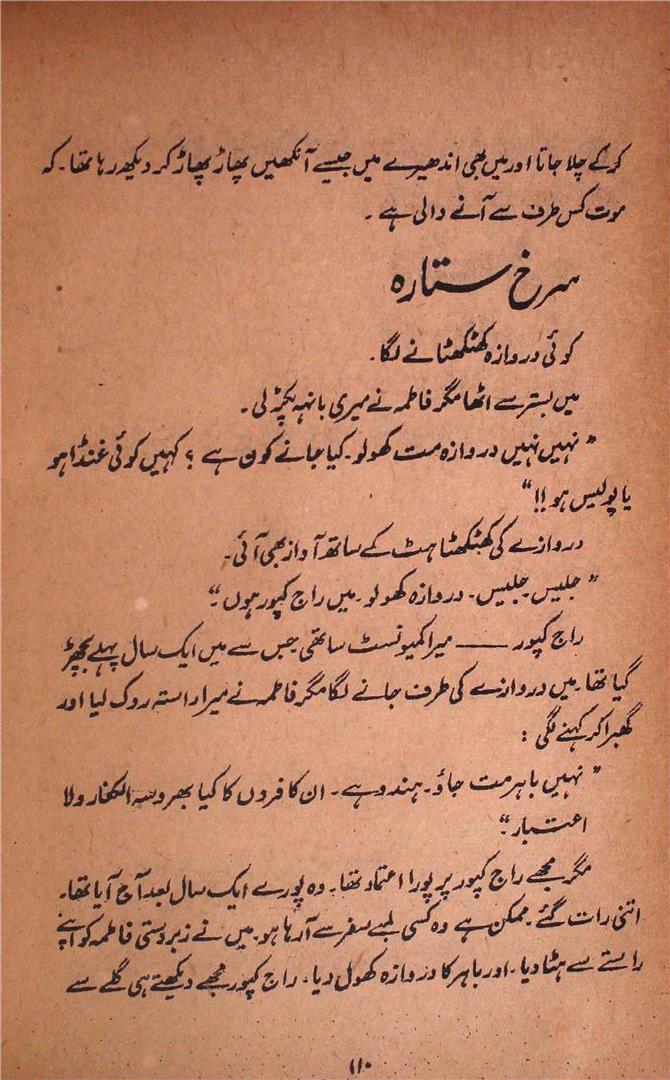 کر کے چلا جاتا اور میں بھی اندھیرے میں جیسے آنکھیں پھاڑ پھاڑ کر دیکھ رہا تھا۔ کہ
موت کس طرف سے آنے والی ہے ۔
سرخ ستارہ
کوئی دروازہ کھٹکھٹانے لگا۔
میں بستر سے اٹھا مگر فاطمہ نے میری بانہہ پکڑ لی ۔
”نہیں نہیں دروازہ مت کھولو۔ کیا جانے کون ہے ؟ کہیں کوئی غنڈا ہو
یا پولیس ہو !!“
دروازے کی کھٹکھٹاہٹ کے ساتھ آواز بھی آئی۔
”جلیس جلیس۔ دروازہ کھولو۔ میں راج کپور ہوں۔“
راج کپور ــــــ میرا کمیونسٹ ساتھی جس سے میں ایک سال پہلے بچھڑ
گیا تھا۔ میں دروازے کی طرف جانے لگا مگر فاطمہ نے میرا راستہ روک لیا اور
گھبرا کر کہنے لگی :
”نہیں باہر مت جاؤ۔ ہندو ہے۔ ان کافروں کا کیا بھروسہ الکفار ولا
اعتبار۔“
مگر مجھے راج کپور پر پورا اعتماد تھا۔ وہ پورے ایک سال بعد آج آیا تھا۔
اتنی رات گئے۔ ممکن ہے وہ کسی لمبے سفر سے آ رہا ہو۔ میں نے زبردستی فاطمہ کو اپنے
راستے سے ہٹا دیا۔ اور باہر کا دروازہ کھول دیا۔ راج کپور مجھے دیکھتے ہی گلے سے
۱۱۰